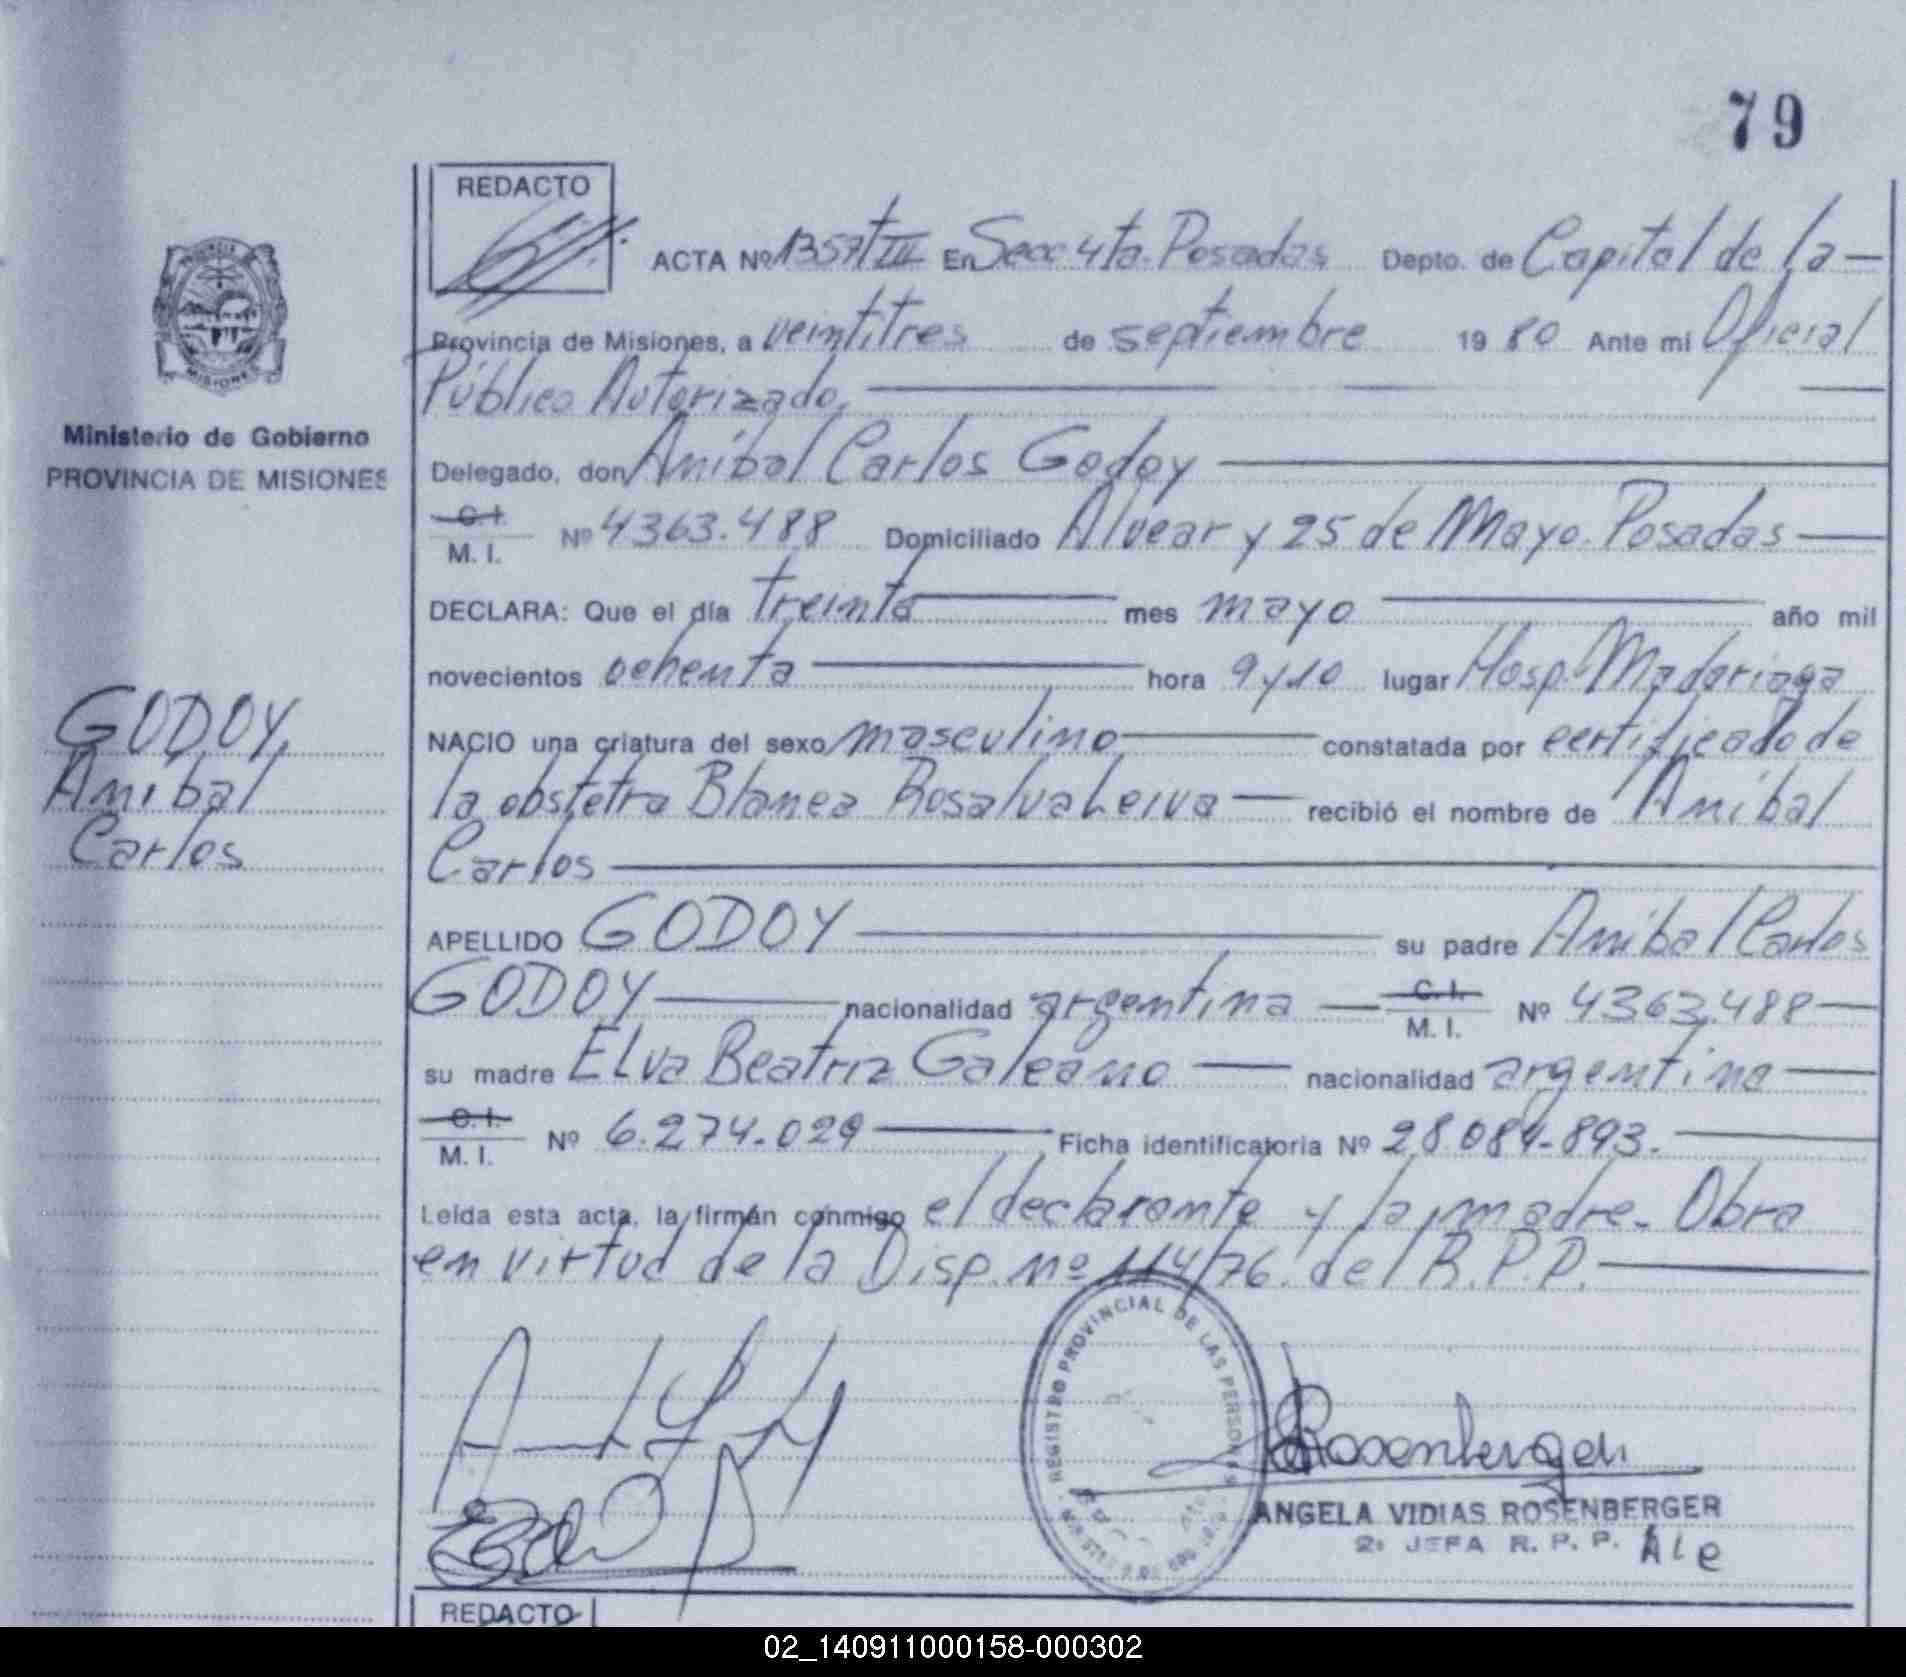 79
REDACTO
ACTA Nº 1357 T III En Secc 4ta. Posadas Depto. de Capital de la
Provincia de Misiones, a veintitres de septiembre 1980 Ante mi Oficial
Público Autorizado,
Delegado, don Aníbal Carlos Godoy
C.I.
M. I. Nº 4363.488 Domiciliado Alvear y 25 de Mayo. Posadas
DECLARA: Que el día treinta mes mayo año mil
novecientos ochenta hora 9 y 10 lugar Hosp. Madariaga
NACIO una criatura del sexo masculino constatada por certificado de
la obstetra Blanca Rosalva Leiva recibió el nombre de Aníbal
Carlos
APELLIDO GODOY su padre Aníbal Carlos
GODOY nacionalidad argentina C. I.
M. I. Nº 4363.488
su madre Elva Beatriz Galeano nacionalidad argentina
C. I.
M. I. Nº 6.274.029 Ficha identificatoria Nº 28.084-893.
Leída esta acta, la firman conmigo el declarante y la madre. Obra
en virtud de la Disp. nº 114/76. del R.P.P.
PROVINCIA
MISIONES
Ministerio de Gobierno
PROVINCIA DE MISIONES
GODOY,
Aníbal
Carlos
REGISTRO PROVINCIAL DE LAS PERSONAS
Rosenberger
ANGELA VIDIAS ROSENBERGER
2º JEFA R. P. P. Ale
REDACTO
02_140911000158-000302